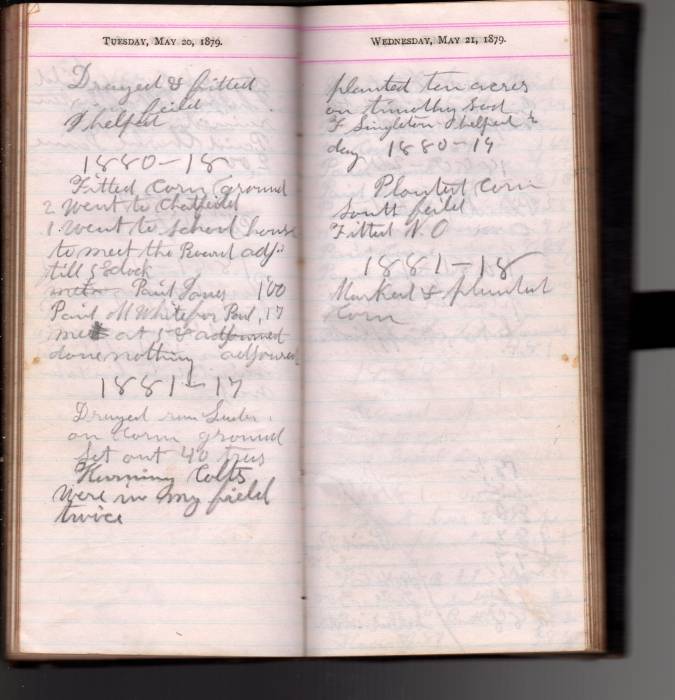 TUESDAY, MAY 20, 1879.
Draged & fitted
feild
I helped
1880-18
Fitted Corn ground
2 Went to Chatfield
1. Went to School house
to meet the Board adj
till 5 oclock
Paid Jones 1.00
Paid M White for Paul, 17
met at 5 & adjourned
done nothing adjourned
1881-17
Draged
on Corn ground
Set out 40 trees
Colts
Were in My field
twice
WEDNESDAY, MAY 21, 1879.
planted ten acres
on timothy sod
F Singleton helped ½
day 1880-19
Planted Corn
South feild
Fitted N. O
1881-18
Marked & planted
Corn